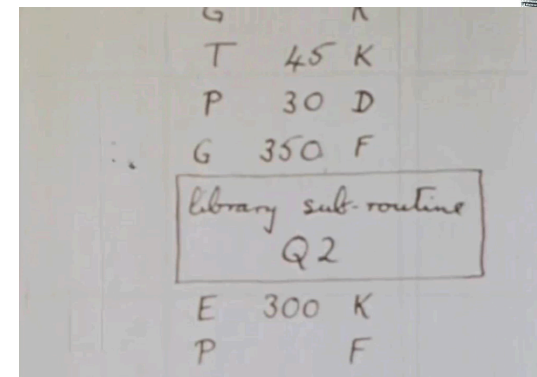 G K
T 45 K
P 30 D
G 350 F
library sub-routine
Q2
E 300 K
P F